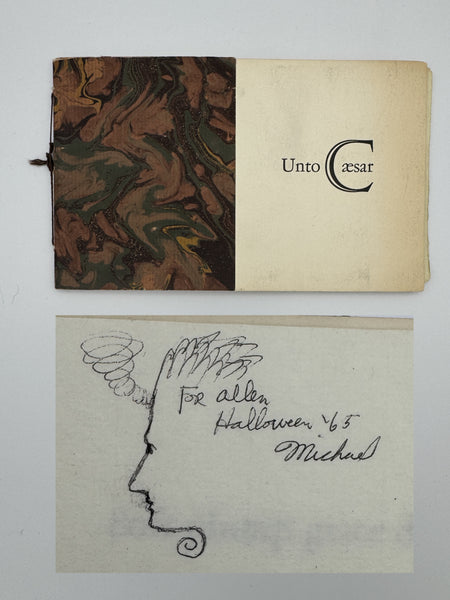 Unto Cæsar
For allen
Halloween '65
Michael